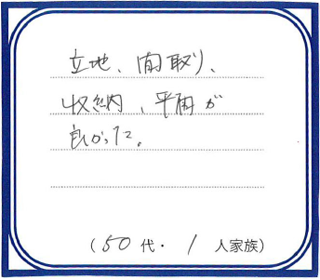 立地、間取り、
収納、平面が
良かった。
(50代・1人家族)